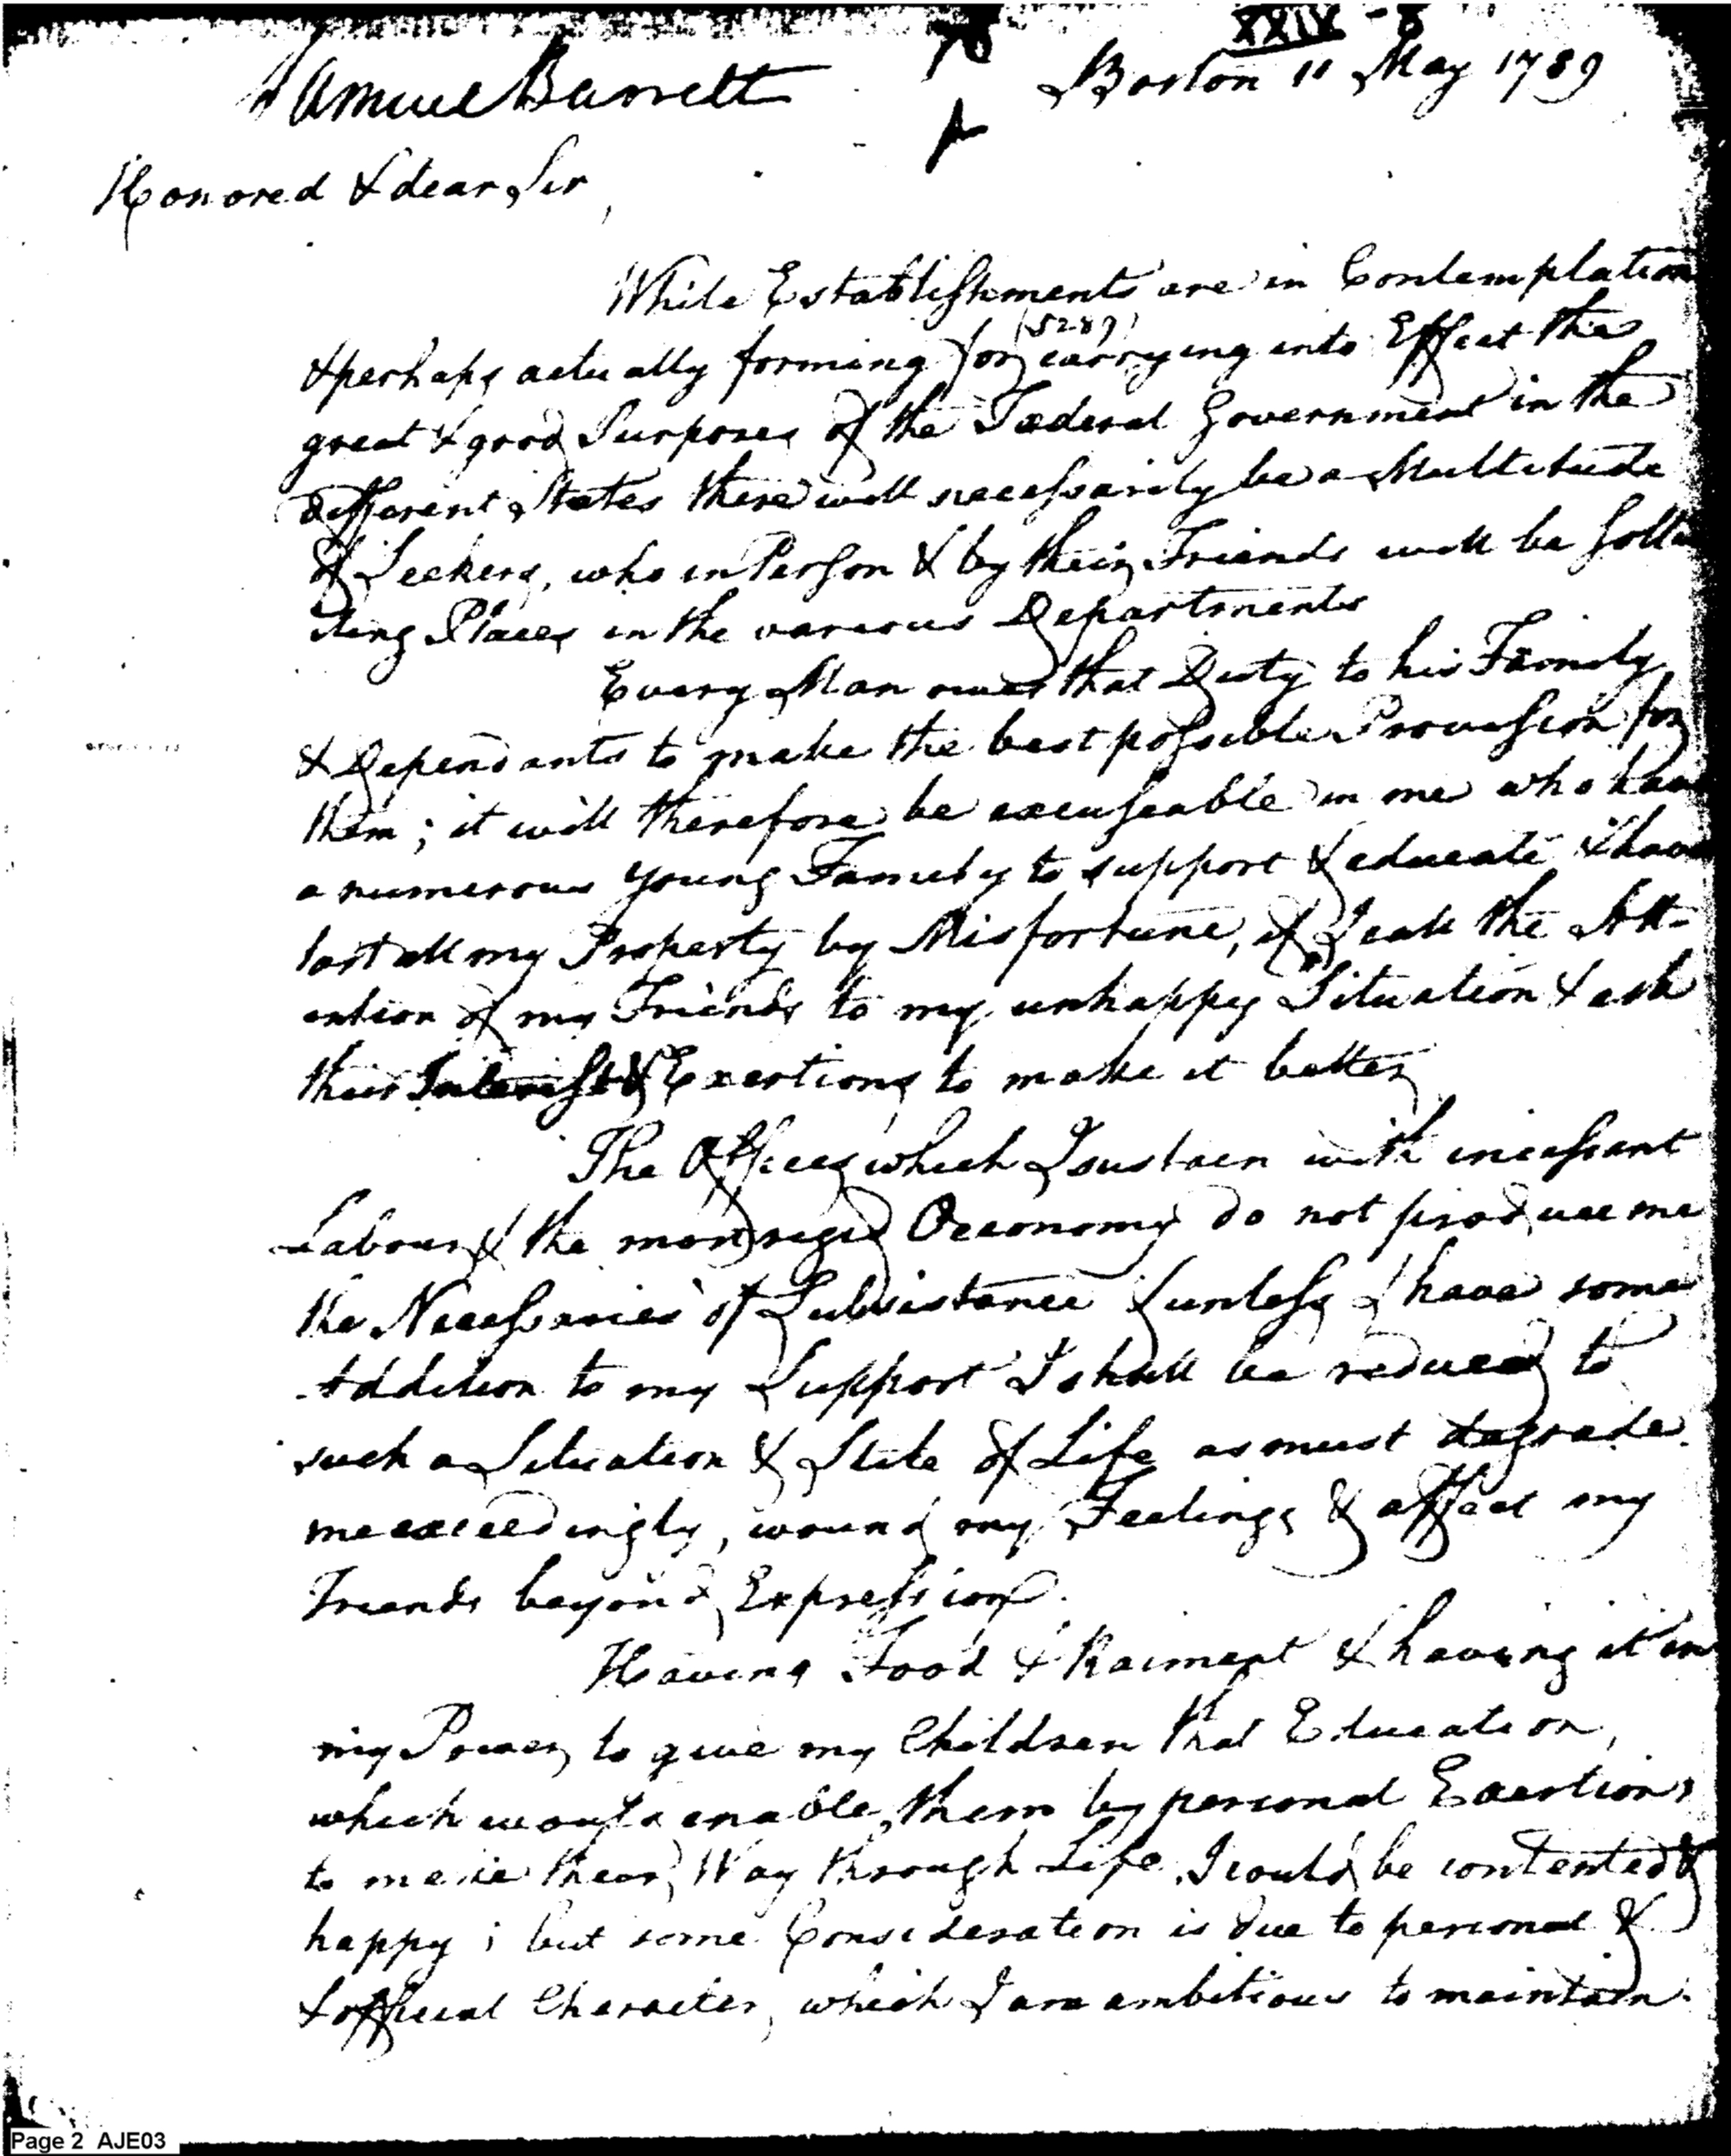 78
XXIV - 8
Samuel Barrett
Boston 11 May 1789
Honored & dear Sir,
While Establishments are in Contemplation
(5289)
& perhaps actually forming for carrying into Effect the
great & good Purposes of the Fœderal Government in the
different States there will necessarily be a Multitude
of Seekers, who in Person & by their Friends will be solli
citing Places in the various Departments
Every Man owes that Duty to his Family
& Dependants to make the best possible Provission for
them; it will therefore be excuseable in me who have
a numerous young Family to support & educate & have
lost all my Property by Misfortune, if I call the Att-
ention of my Friends to my unhappy Situation & ask
their Interest & Exertions to make it better
The Offices which I sustain with incessant
Labour & the most rigid Oeconomy do not produce me
the Necessaries of Subsistance & unless I have some
Addition to my Support I shall be reduced to
such a Situation & State of Life as must degrade
me exceedingly, wound my Feelings & affect my
Friends beyond Expression.
Having Food & Raiment & having it in
my Power to give my Children that Education,
which would enable them by personal Exertions
to make their Way through Life I could be contented &
happy; but some Consideration is due to personal &
& official Character, which I am ambitious to maintain.
Page 2 AJE03